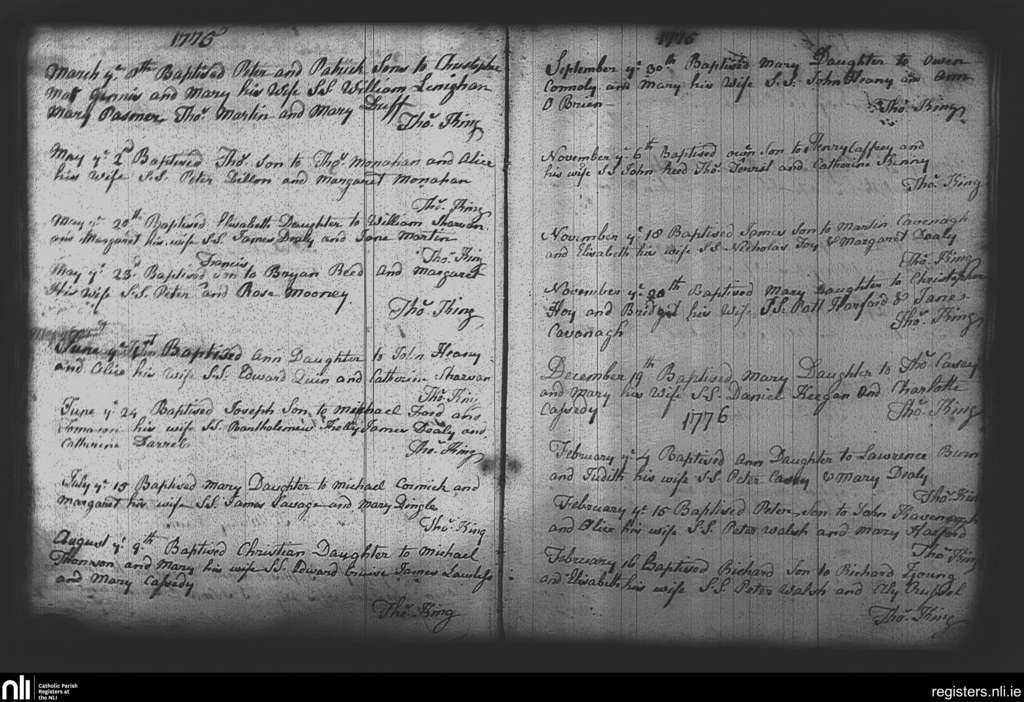 1775
March ye 8th Baptised Peter and Patrick Sons to Christopher
and Mary his Wife S.S. William Lenighan
Mary Thos. Martin and Mary Duff
Thos. King
May ye 2d Baptised Thos. Son to Thos. Monahan and Alice
his Wife S.S. Peter Dillon and Margaret Monahan
Thos. King
May ye 20th Baptised Elisabeth Daughter to William
and Margaret his wife S.S. James Dealy and Jane Martin
Thos. King
Francis
May ye 23d Baptised Son to Bryan Reed and Margaret
His Wife S.S. Peter and Rose Mooney
Thos. King
June ye Baptised Ann Daughter to John Heavy
and Alice his wife S.S. Edward Quin and Catherine
Thos. King
June ye 24 Baptised Joseph Son to Michael Ford and
his wife S.S. Bartholomew James Dealy and
Catherine
Thos. King
July ye 15 Baptised Mary Daughter to Michael Cormick and
Margaret his wife S.S. James Savage and Mary Dingle
Thos. King
August ye 8th Baptised Christian Daughter to Michael
and Mary his wife S.S. Edward Cruise James Lawless
and Mary Cassedy
Thos. King
1775
September ye 30th Baptised Mary Daughter to Owen
Connoly and Mary his Wife S.S. John and Ann
O Brien
Thos. King
November ye 6th Baptised Son to Henry Caffrey and
his wife S.S John Reed Thos. and Catherine Kenny
Thos. King
November ye 18 Baptised James Son to Martin Cavenagh
and Elisabeth his wife S.S. Nicholas Foy & Margaret Dealy
Thos. King
November ye Baptised Mary Daughter to Christopher
Hoy and Bridget his Wife S.S. Patt Harford & Jane
Thos. King
Cavanagh
December 19th Baptised Mary Daughter to Thos. Casey
and Mary his Wife S.S. Daniel Keegan and Charlotte
Cassedy
Thos. King
1776
February ye 4 Baptised Ann Daughter to Lawrence Burn
and Judith his wife S.S. Peter Casey & Mary Dealy
Thos. King
February ye 15 Baptised Peter Son to John Kavenagh
and Alice his wife S.S. Peter Walsh and Mary Harford
Thos. King
February 16 Baptised Richard Son to Richard Young
and Elisabeth his wife S.S. Peter Walsh and Russel
Thos. King
nli
Catholic Parish
Registers at
the NLI
registers.nli.ie